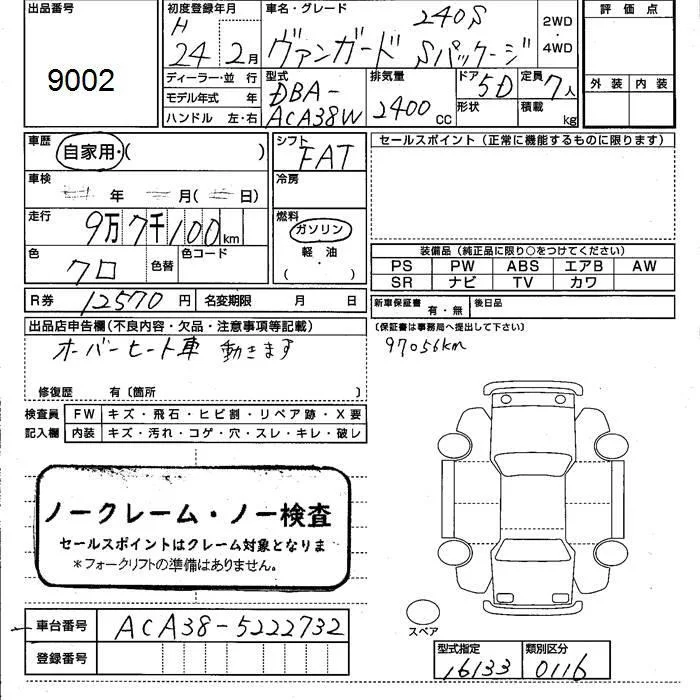 出品番号
9002
初度登録年月
H
24 2月
車名・グレード
240S
ヴァンガード Sパッケージ
2WD
・
4WD
評価点
外装 内装
ディーラー・並 行
モデル年式 年
ハンドル 左・右
型式
DBA-
ACA38W
排気量
2400
CC
ドア
5D
形状
定員
7人
積載
kg
車歴
自家用・( )
シフト
FAT
セールスポイント(正常に機能するものに限ります)
車検
年 月( 日)
冷房
走行
9万7千100km
燃料
ガソリン
軽・油
( ・ )
色
クロ
色替
色コード
装備品(純正品に限り○をつけてください)
PS PW ABS エアB AW
SR ナビ TV カワ
R券 12570 円 名変期限 月 日
新車保証書
有・無
後日品
出品店申告欄(不良内容・欠品・注意事項等記載)
オーバーヒート車 動きます
修復歴 有〔箇所 〕
〔保証書は事務局へ提出して下さい〕
97056km
検査員 FW キズ・飛石・ヒビ割・リペア跡・X要
記入欄 内装 キズ・汚れ・コゲ・穴・スレ・キレ・破レ
ノークレーム・ノー検査
セールスポイントはクレーム対象となりま
*フォークリフトの準備はありません。
車台番号 ACA38-5222732
登録番号
スペア
型式指定
16133
類別区分
0116